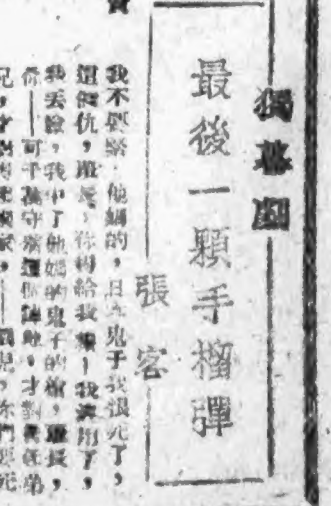 獨幕劇
最後一顆手榴彈
張客
我不要緊,他媽的,日本鬼子我恨死了,
這個仇,連長,你得給我報!我沒用了,
我丟臉,我中了他媽的鬼子的槍,連長,
你——可千萬守住這個陣地,才對得住弟
兄,才對得住國家,——弟兄,你們要死